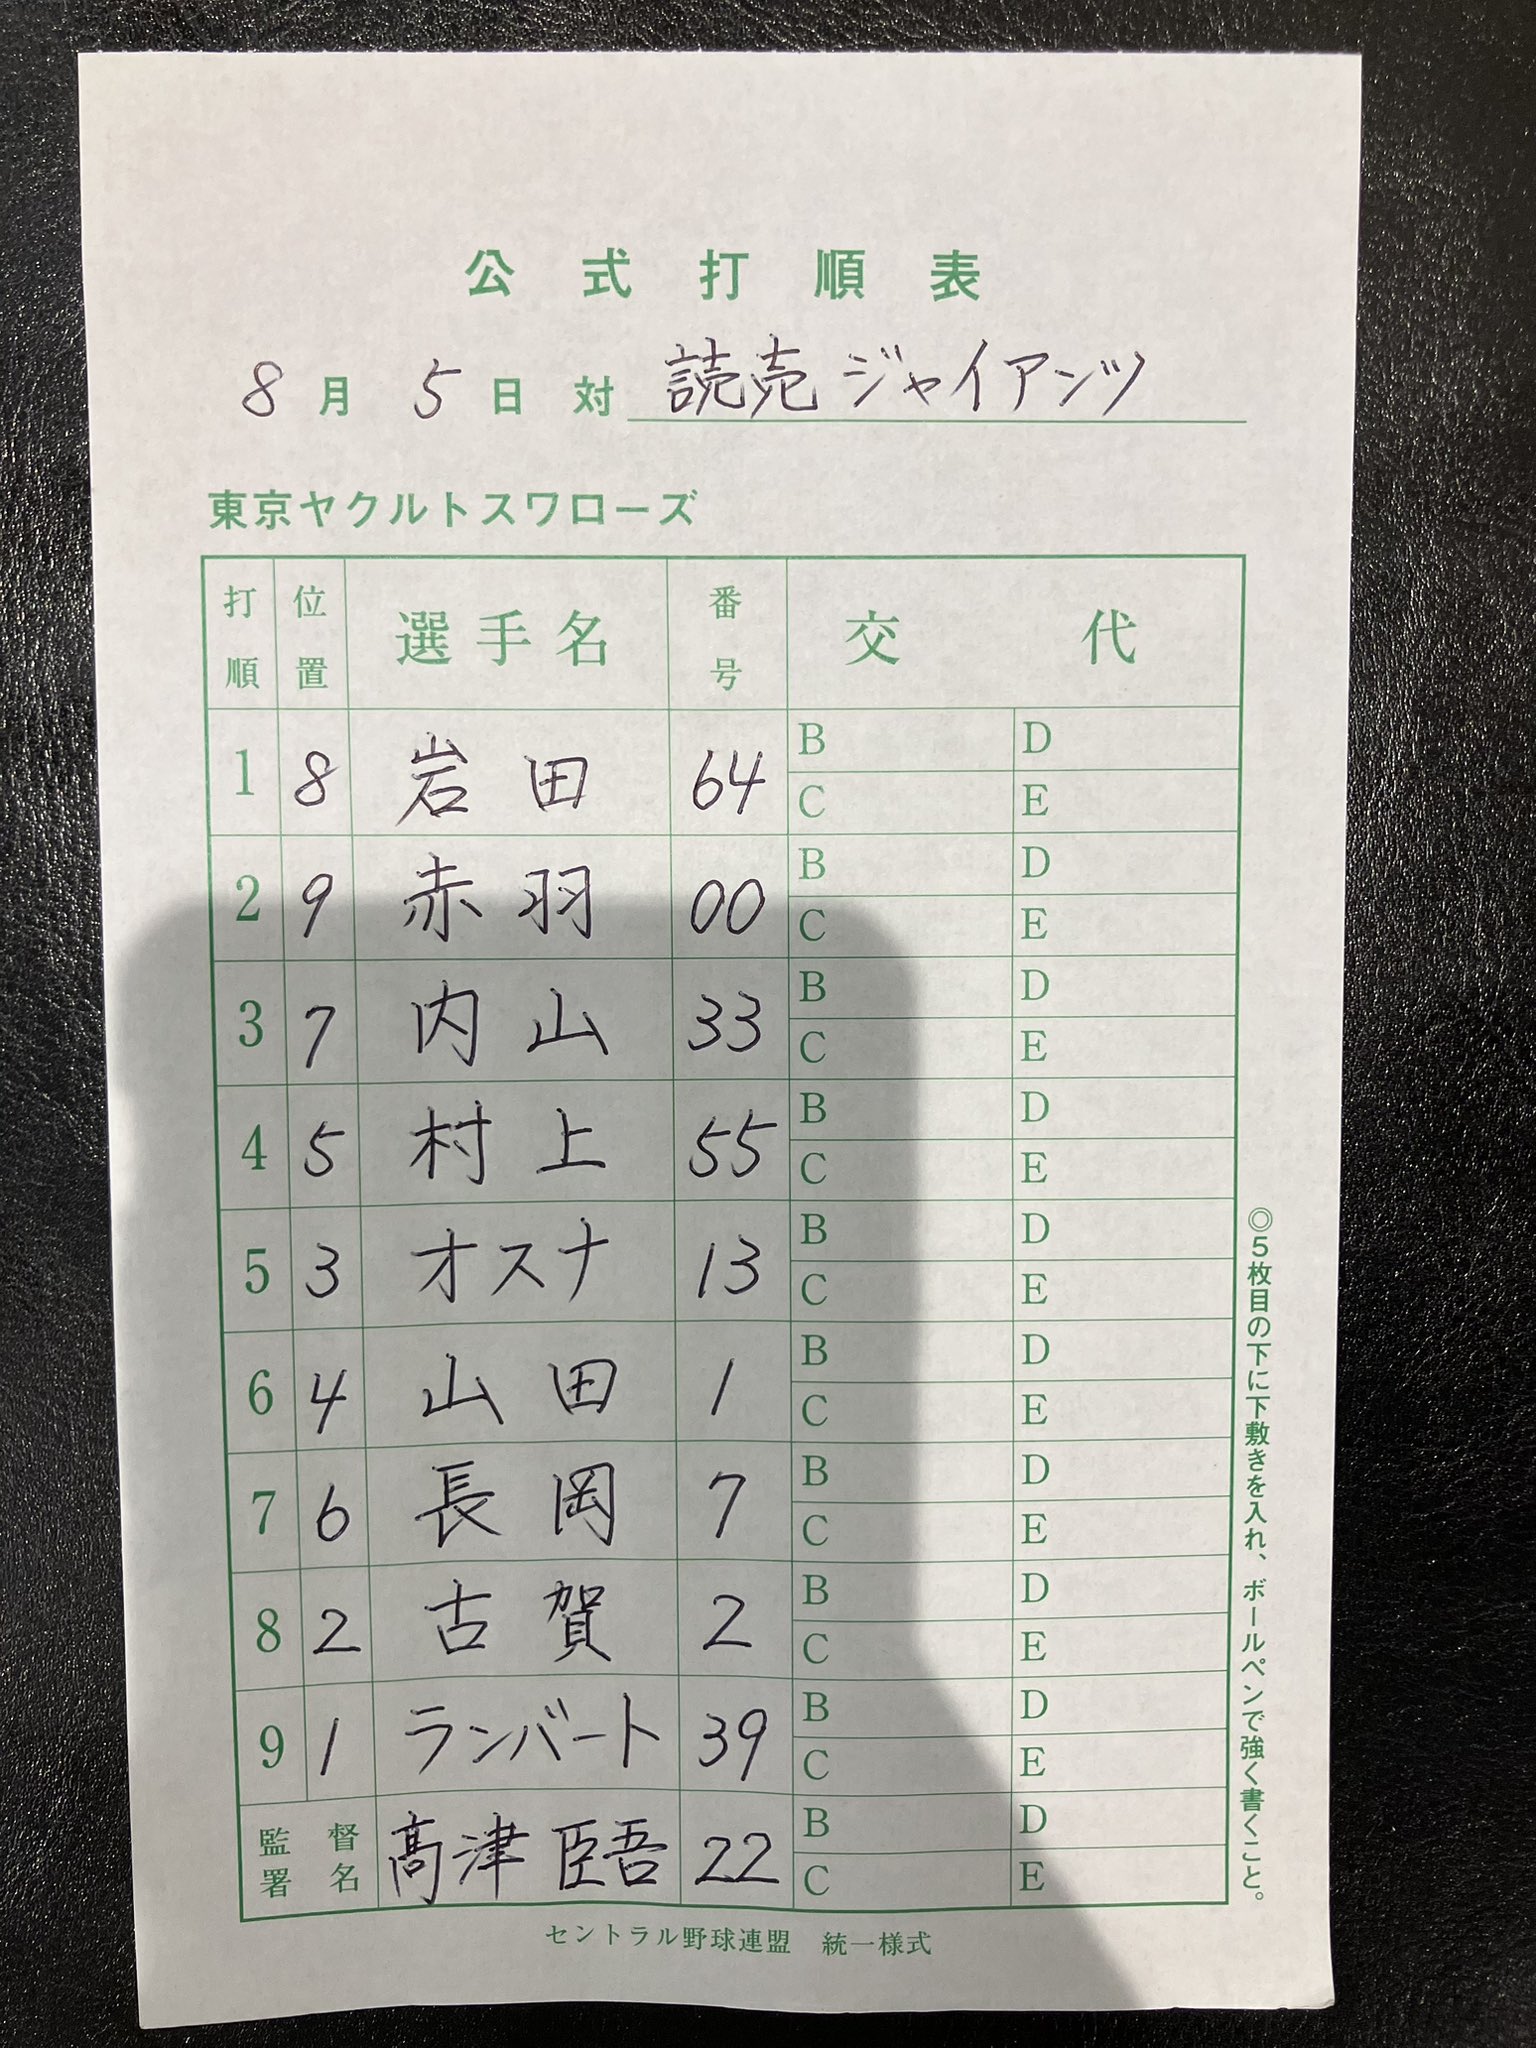 公式打順表
8月5日 対 読売ジャイアンツ
東京ヤクルトスワローズ
打順 位置 選手名 番号 交代
1 8 岩田 64 B D
C E
2 9 赤羽 00 B D
C E
3 7 内山 33 B D
C E
4 5 村上 55 B D
C E
5 3 オスナ 13 B D
C E
6 4 山田 1 B D
C E
7 6 長岡 7 B D
C E
8 2 古賀 2 B D
C E
9 1 ランバート 39 B D
C E
監督署名 髙津臣吾 22 B D
C E
セントラル野球連盟 統一様式
◎5枚目の下に下敷きを入れ、ボールペンで強く書くこと。